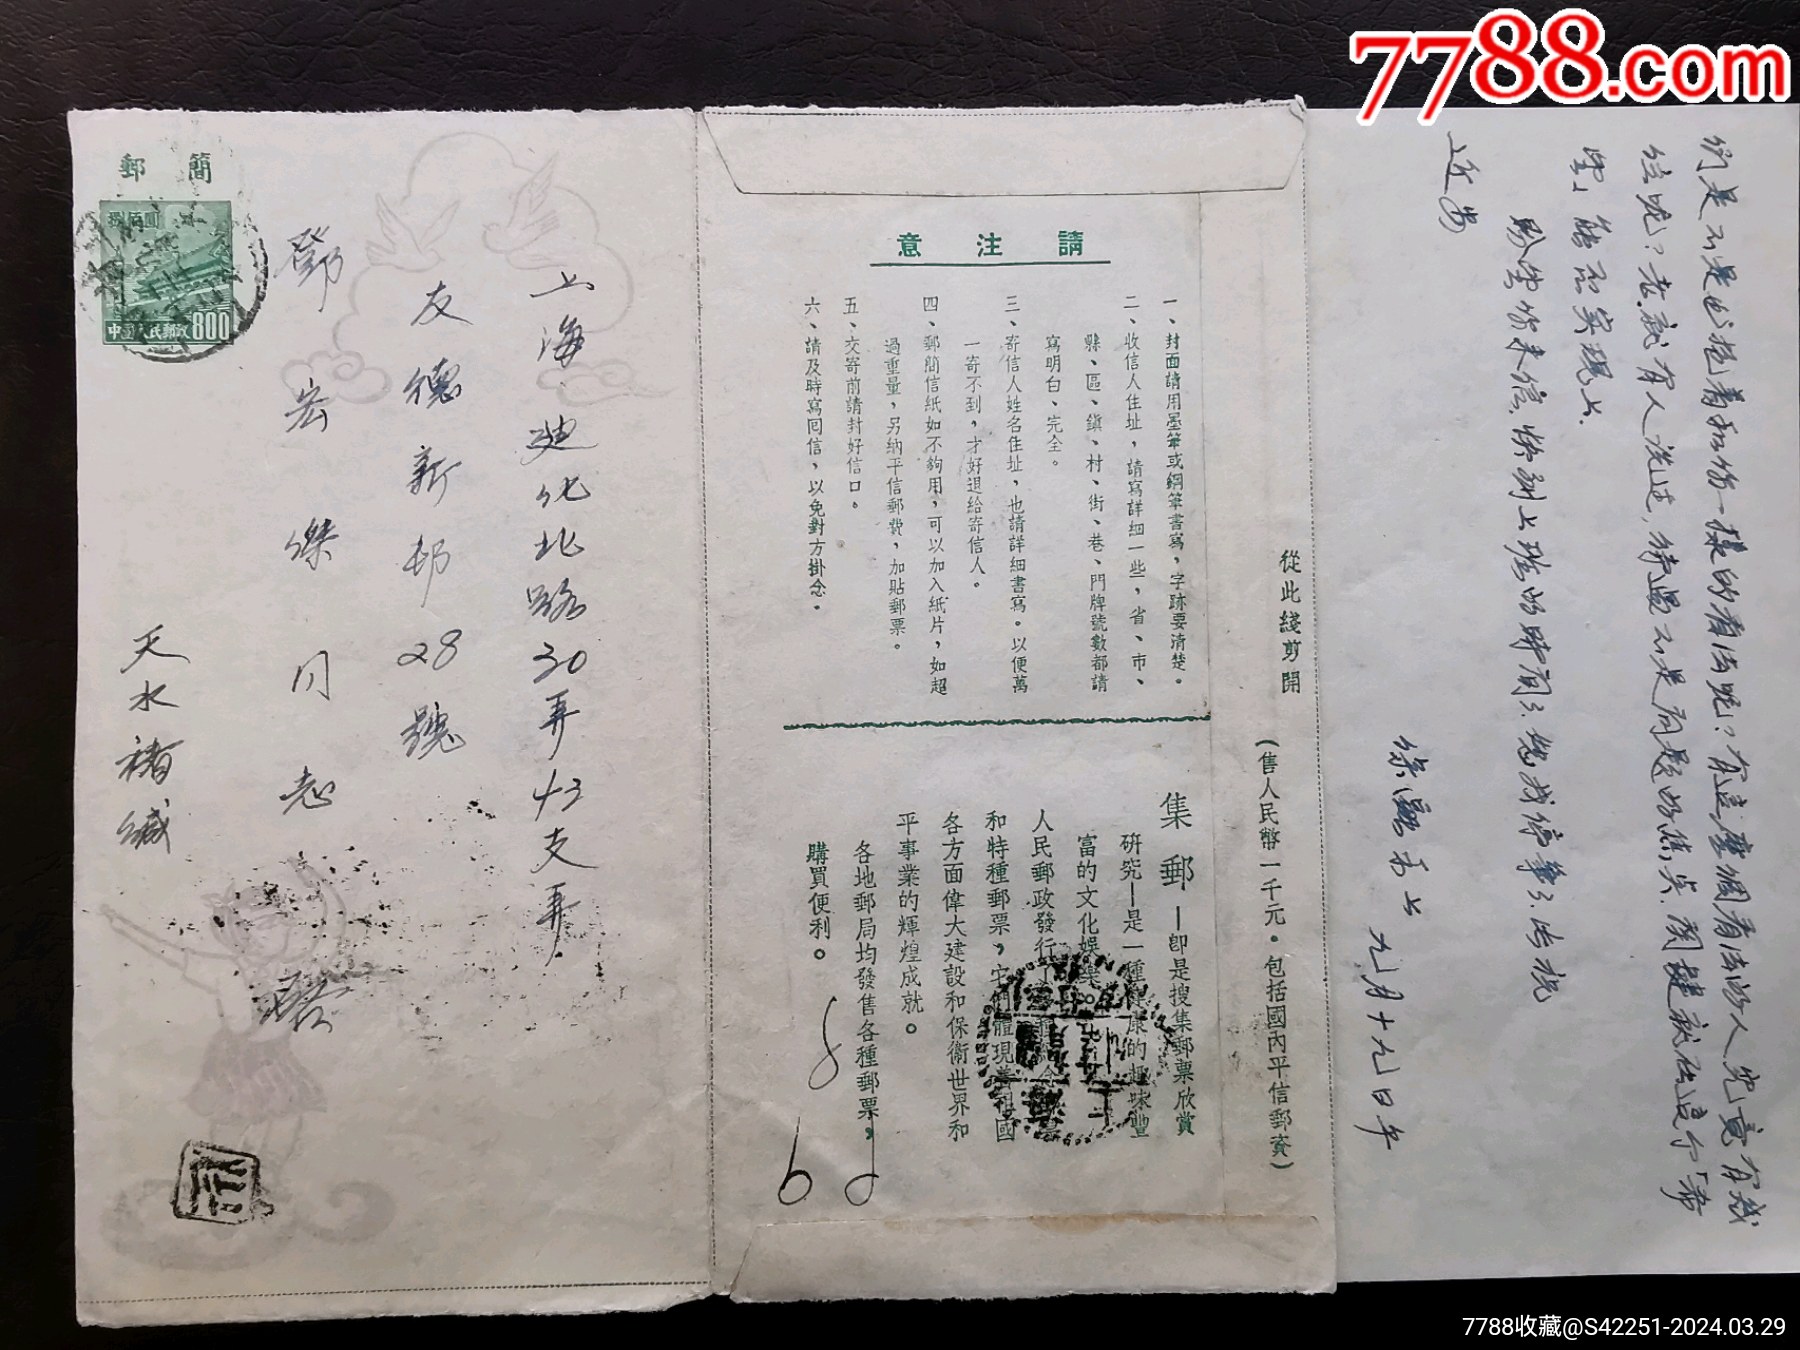 7788.com
郵簡
捌佰圓
中國人民郵政800
上海迪化北路30弄43支弄
友德新邨28號
鄧宏傑同志
天水褚緘
請注意
一、封面請用墨筆或鋼筆書寫，字跡要清楚。
二、收信人住址，請寫詳細一些，省、市、
縣、區、鎮、村、街、巷、門牌號數都請
寫明白、完全。
三、寄信人姓名住址，也請詳細書寫。以便萬
一寄不到，才好退給寄信人。
四、郵簡信紙如不夠用，可以加入紙片，如超
過重量，另納平信郵費，加貼郵票。
五、交寄前請封好信口。
六、請及時寫回信，以免對方掛念。
從此綫剪開
(售人民幣一千元．包括國內平信郵資)
集郵—卽是搜集郵票欣賞
研究—是一種健康的趣味豐
富的文化娛樂。
人民郵政發行了
和特種郵票，它們體現着祖國
各方面偉大建設和保衛世界和
平事業的輝煌成就。
各地郵局均發售各種郵票，
購買便利。
們是不是也抱着和你一樣的看法呢？有這麼個看法的人究竟有幾
位呢？若就有人洗
望」能否實現上．
盼望你來信．快到上班的時間了．恕我停筆了．此祝
近安
九月十九日午
7788收藏@S42251-2024.03.29